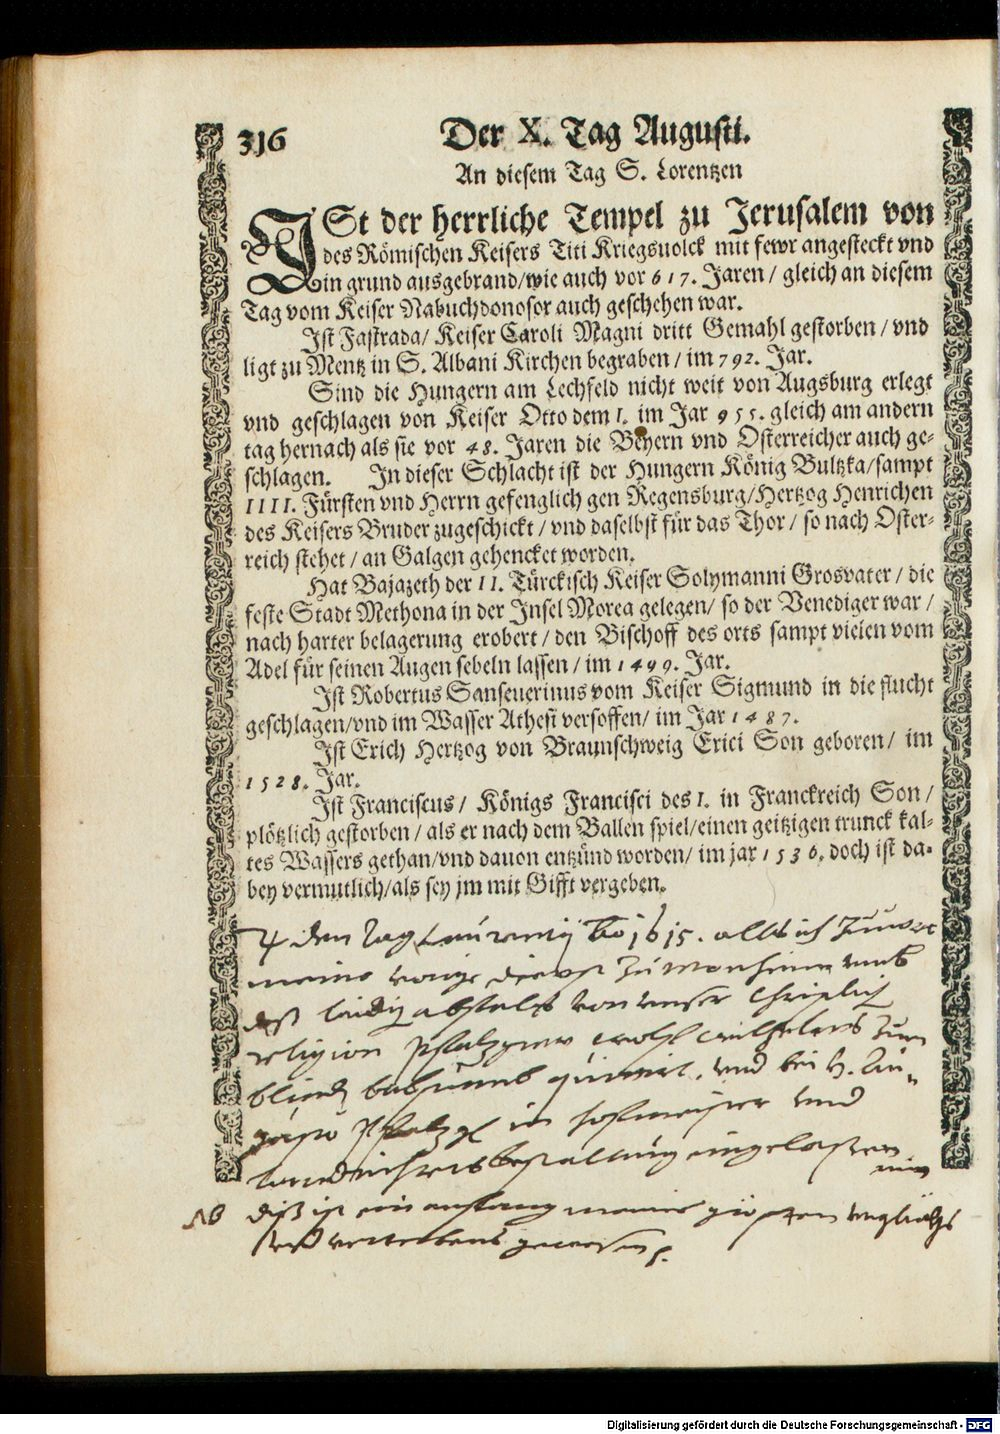 316
Der X. Tag Augusti.
An diesem Tag S. Lorentzen
ISt der herrliche Tempel zu Jerusalem von
des Römischen Keisers Titi Kriegsuolck mit fewr angesteckt vnd
in grund ausgebrand/wie auch vor 617. Jaren/ gleich an diesem
Tag vom Keiser Nabuchdonosor auch geschehen war.
Ist Fastrada/ Keiser Caroli Magni dritt Gemahl gestorben/ vnd
ligt zu Mentz in S. Albani Kirchen begraben/ im 792. Jar.
Sind die Hungern am Lechfeld nicht weit von Augsburg erlegt
vnd geschlagen von Keiser Otto dem I. im Jar 955. gleich am andern
tag hernach als sie vor 48. Jaren die Beyern vnd Osterreicher auch ge-
schlagen. In dieser Schlacht ist der Hungern König Bultzka/sampt
IIII. Fürsten vnd Herrn gefenglich gen Regensburg/Hertzog Henrichen
des Keisers Bruder zugeschickt/ vnd daselbst für das Thor/ so nach Oster-
reich stehet/ an Galgen gehencket worden.
Hat Bajazeth der II. Türckisch Keiser Solymanni Grosvater/ die
feste Stadt Methona in der Insel Morea gelegen/ so der Venediger war/
nach harter belagerung erobert/ den Bischoff des orts sampt vielen vom
Adel für seinen Augen sebeln lassen/ im 1499. Jar.
Ist Robertus Sanseuerinus vom Keiser Sigmund in die flucht
geschlagen/vnd im Wasser Athesi versoffen/ im Jar 1487.
Ist Erich Hertzog von Braunschweig Erici Son geboren/ im
1528. Jar.
Ist Franciscus/ Königs Francisci des I. in Franckreich Son/
plötzlich gestorben/ als er nach dem Ballen spiel/einen geitzigen trunck kal-
tes Wassers gethan/vnd dauon entzünd worden/ im jar 1536. doch ist da-
bey vermutlich/als sey jm mit Gifft vergeben.
den tag Laurentij 1615. alls ich zuuor
meine vorige dienst zu Monheim
abfalls von vnser Christlich
religion Pfalzgraw Wolf Wilhelms zum
vnd bei H. Au-
gusto Pfalzg in hofmeister vnd
bestallung eingelassen
NB diß ist ein anfang meines grösten vnglückhs
vnd verderbens gewesen
Digitalisierung gefördert durch die Deutsche Forschungsgemeinschaft - DFG